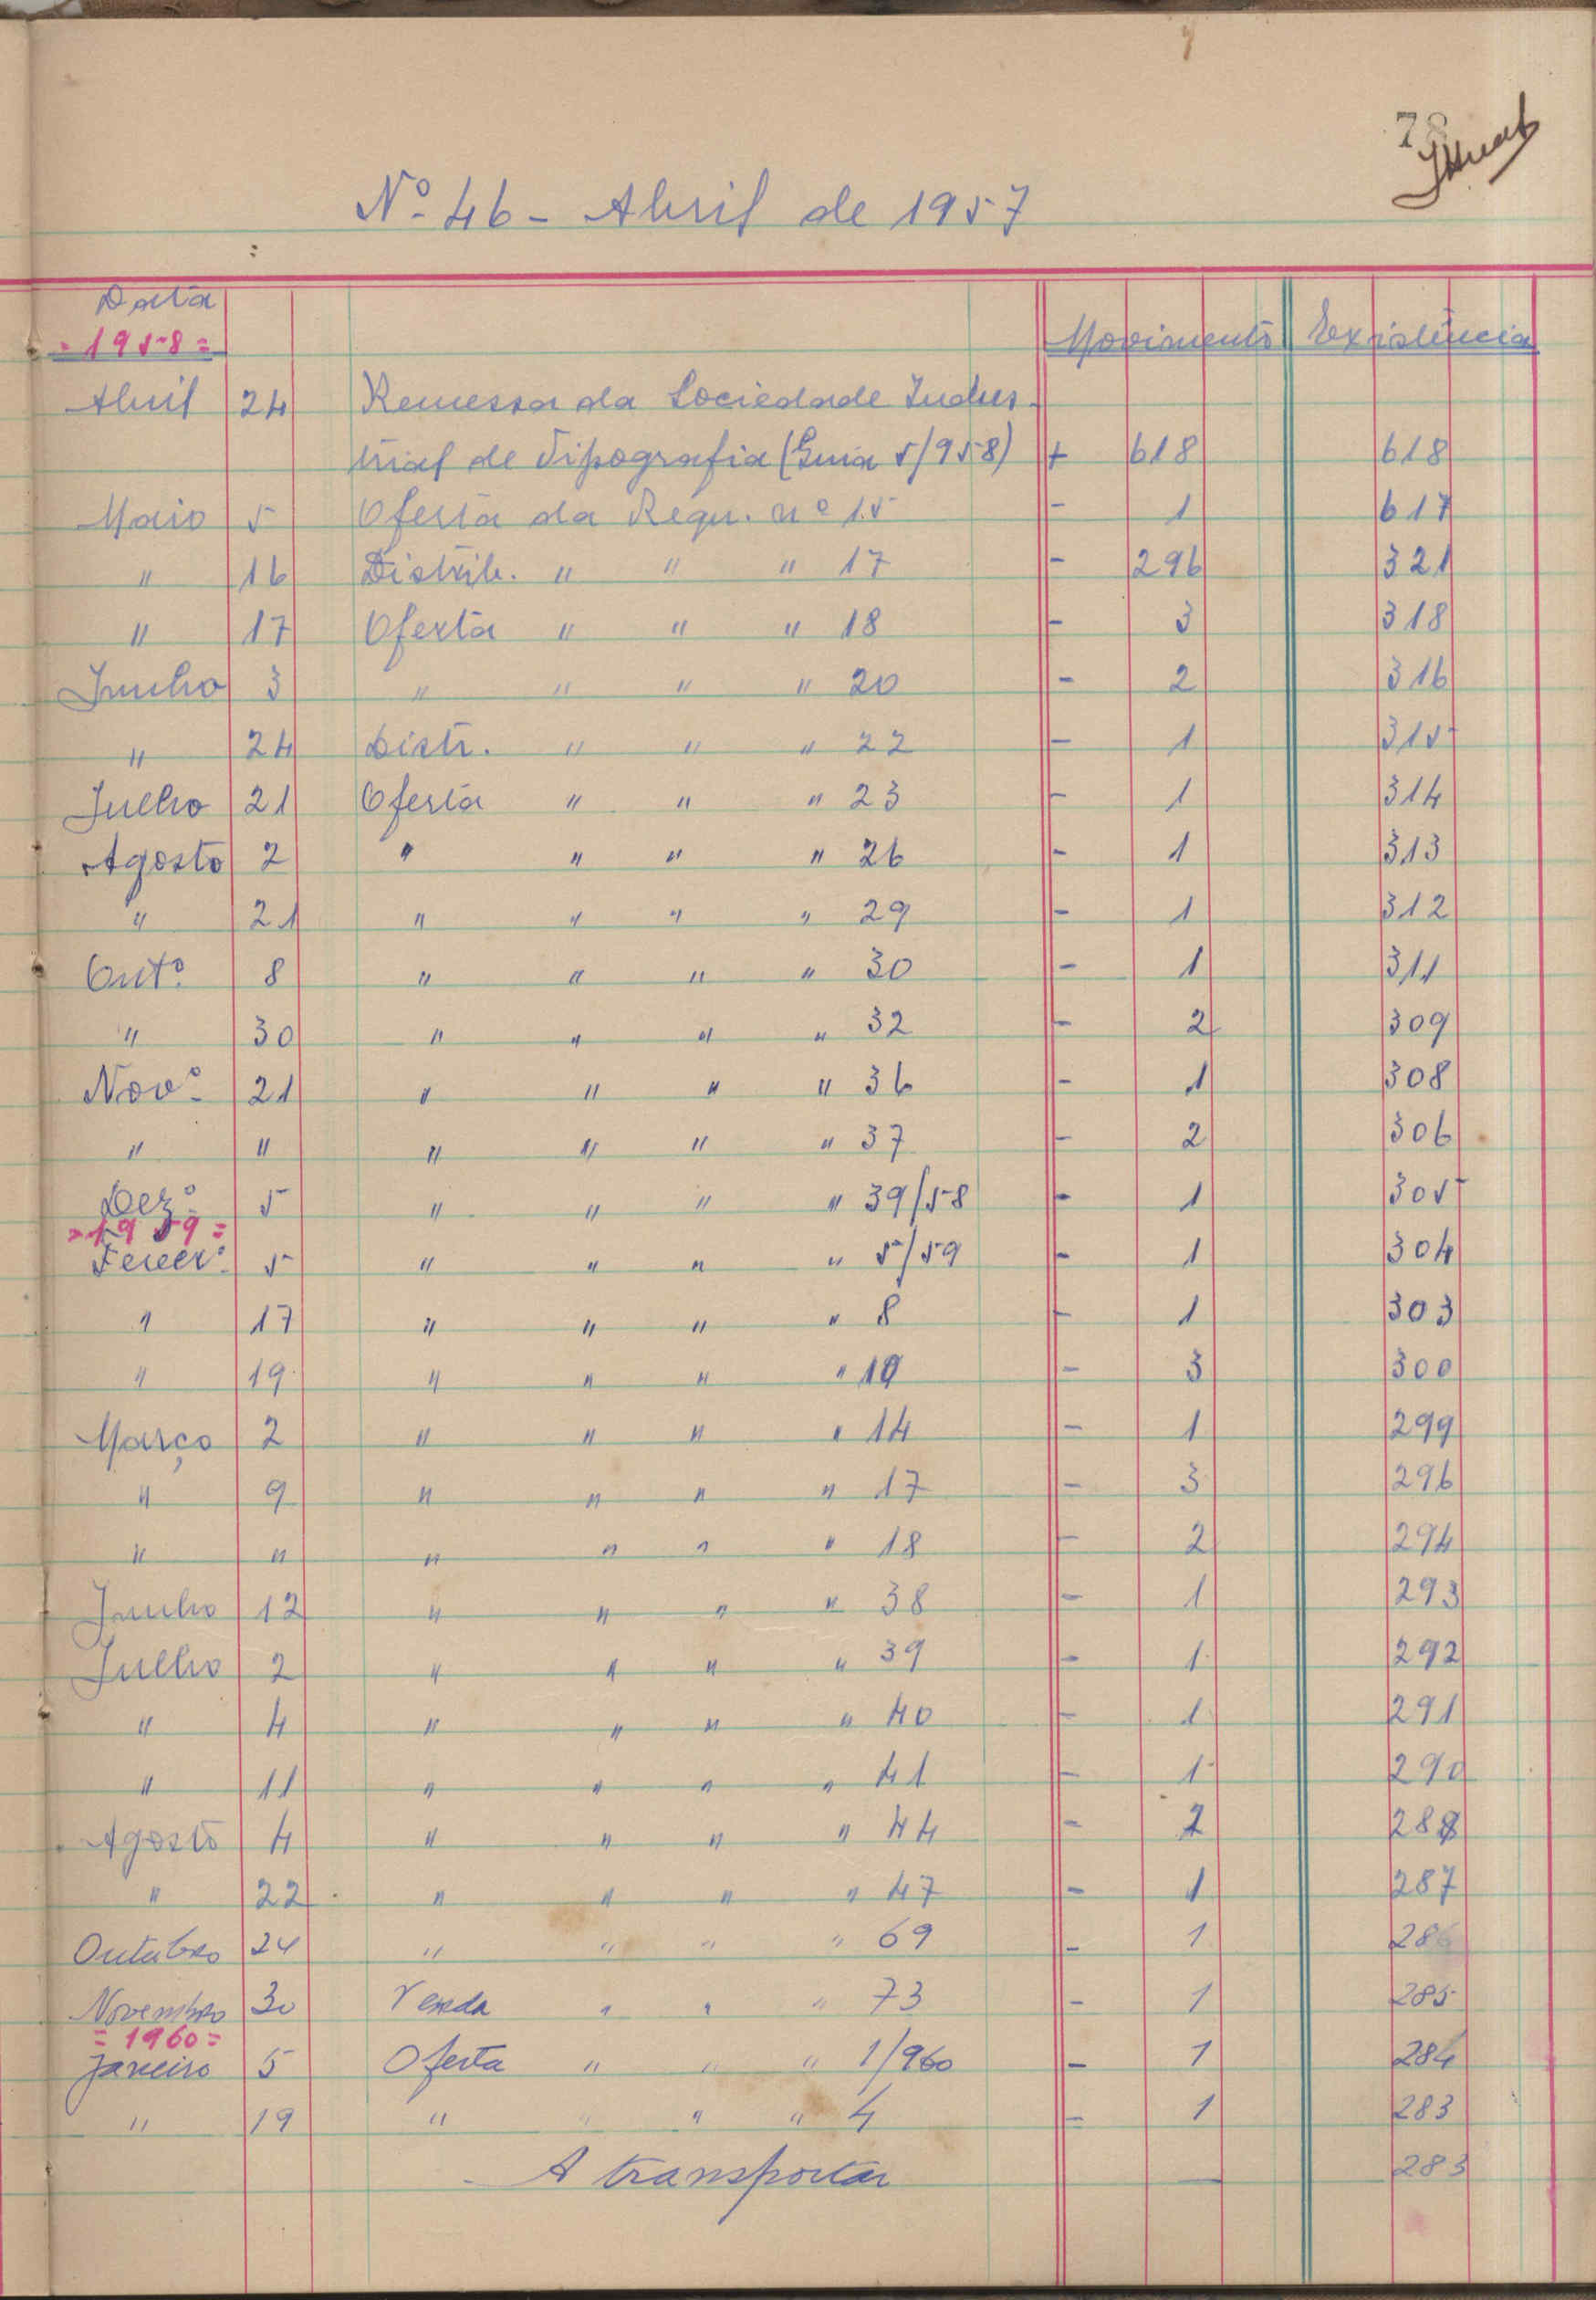 78
Nº 46 - Abril de 1957
Data Movimento Existência
= 1958 =
Abril 24 Remessa da Sociedade Indus-
trial de Tipografia (Guia 5/958) + 618 618
Maio 5 Oferta da Requ. nº 15 - 1 617
" 16 Distrib. " " " 17 - 296 321
" 17 Oferta " " " 18 - 3 318
Junho 3 " " " " 20 - 2 316
" 24 Distr. " " " 22 - 1 315
Julho 21 Oferta " " " 23 - 1 314
Agosto 2 " " " " 26 - 1 313
" 21 " " " " 29 - 1 312
Outº 8 " " " " 30 - 1 311
" 30 " " " " 32 - 2 309
Novº 21 " " " " 36 - 1 308
" " " " " " 37 - 2 306
Dezº 5 " " " " 39/58 - 1 305
= 1959 =
Feverº 5 " " " " 5/59 - 1 304
" 17 " " " " 8 - 1 303
" 19 " " " " 10 - 3 300
Março 2 " " " " 14 - 1 299
" 9 " " " " 17 - 3 296
" " " " " " 18 - 2 294
Junho 12 " " " " 38 - 1 293
Julho 2 " " " " 39 - 1 292
" 4 " " " " 40 - 1 291
" 11 " " " " 41 - 1 290
Agosto 4 " " " " 44 - 2 288
" 22 " " " " 47 - 1 287
Outubro 24 " " " " 69 - 1 286
Novembro 30 Venda " " " 73 - 1 285
= 1960 =
Janeiro 5 Oferta " " " 1/960 - 1 284
" 19 " " " " 4 - 1 283
A transportar — 283